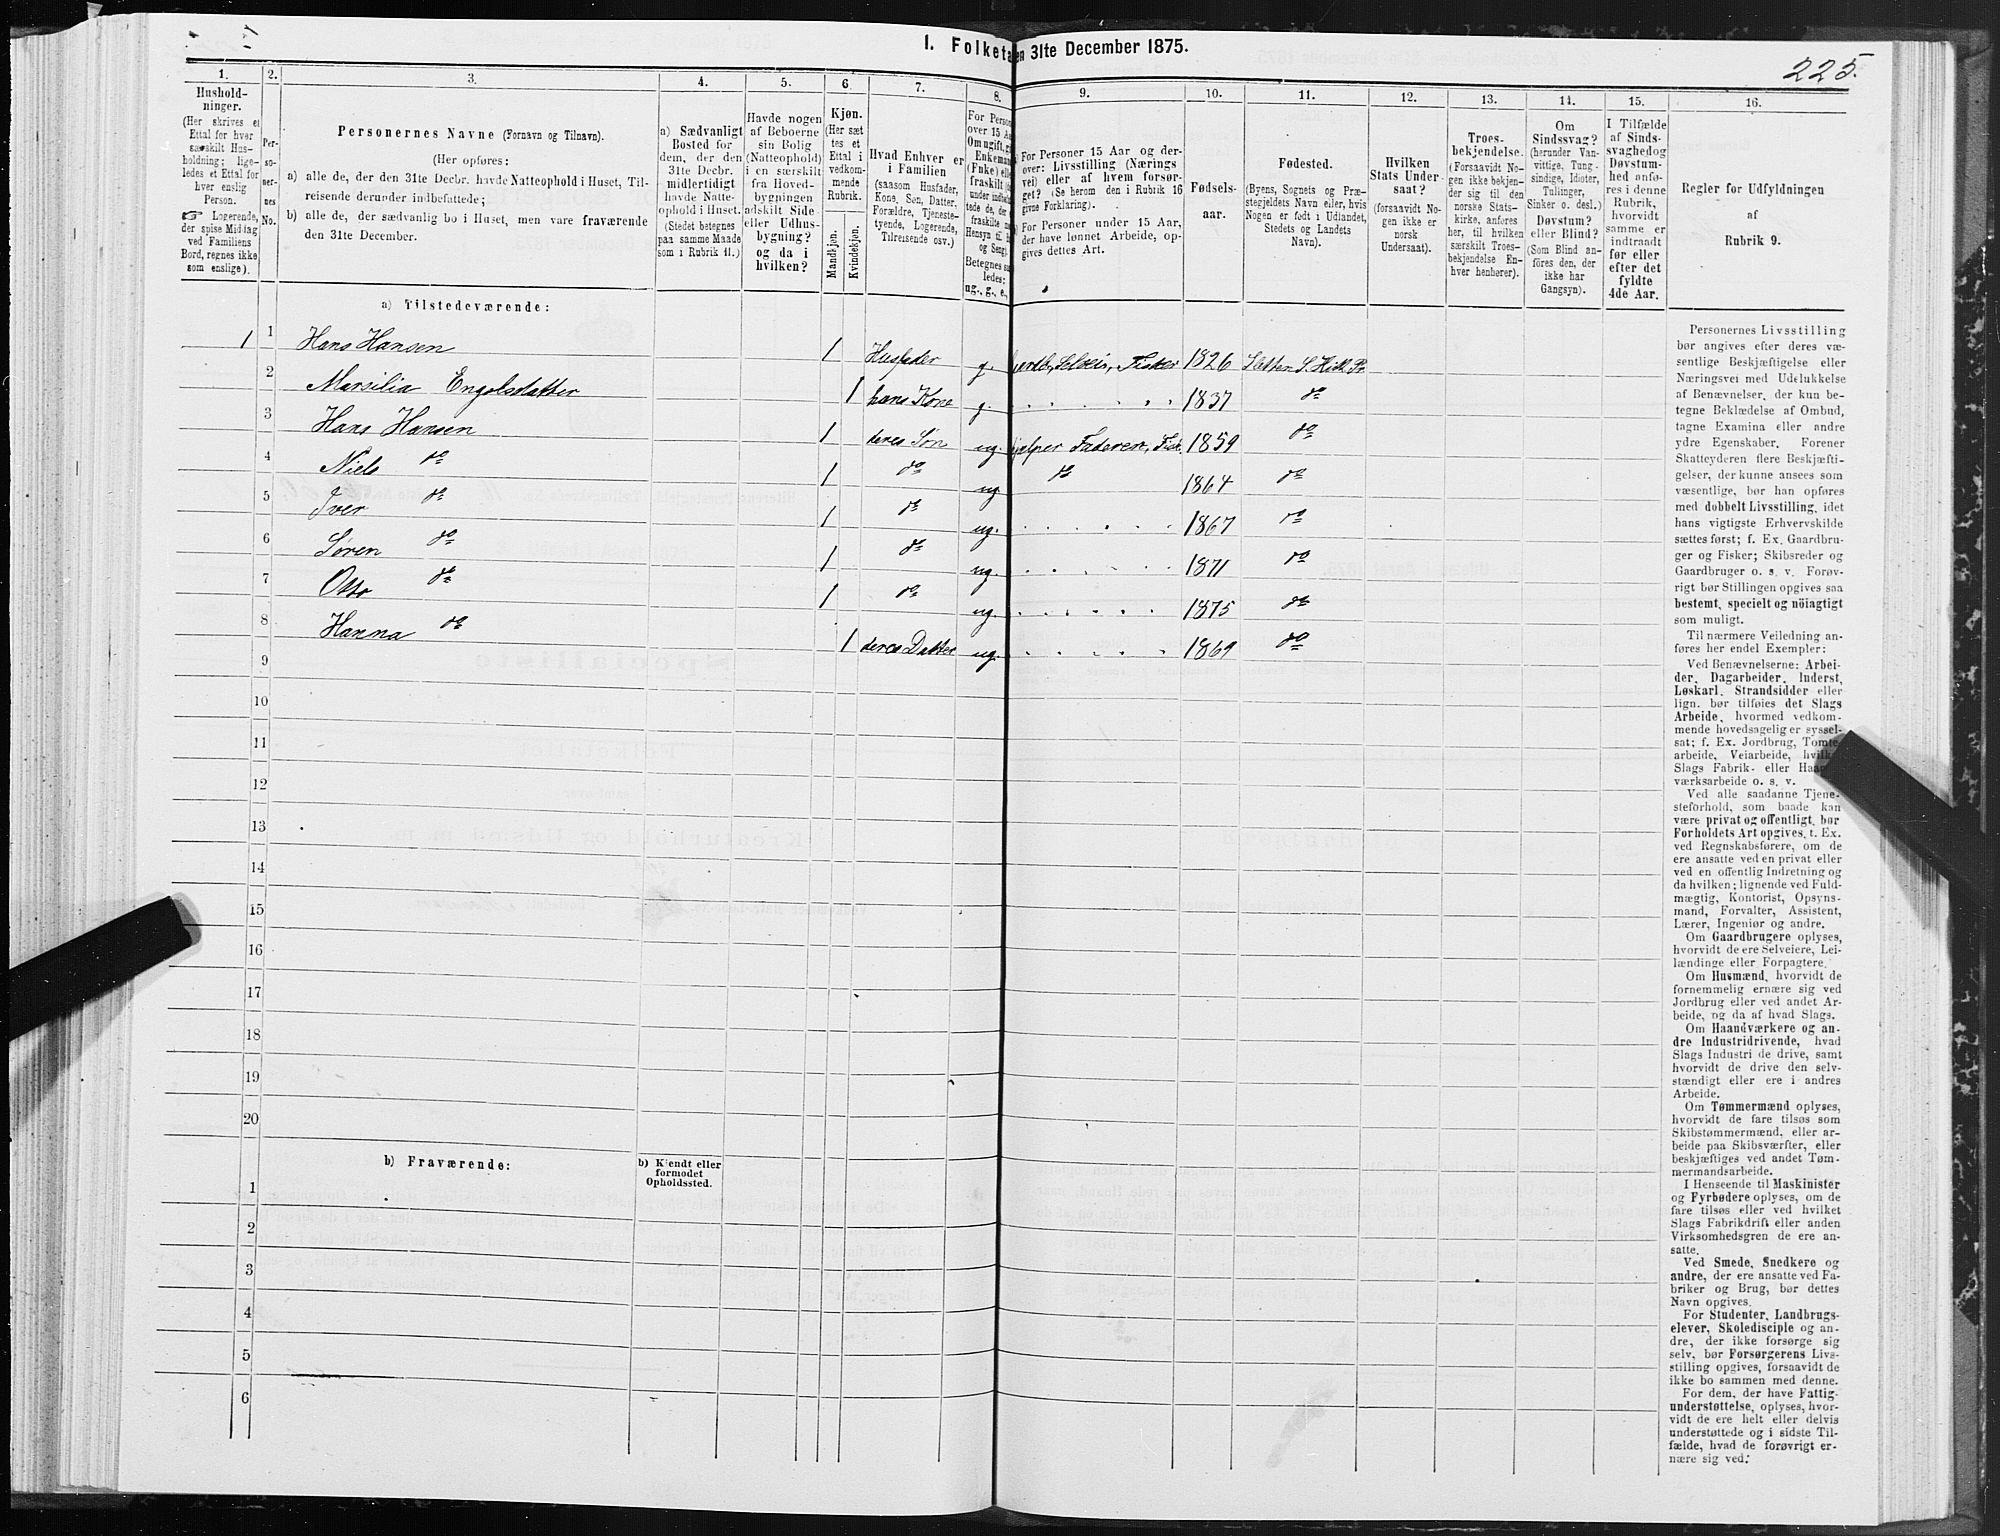 I. Folketa en 31te December 1875.
225.
1. 2. 3. 4. 5. 6. 7. 8. 9. 10. 11. 12. 13. 14. 15. 16.
Hushold-
ninger.
(Her skrives et
Ettal for hver
særskilt Hus-
holdning; lige-
ledes et Ettal for
hver enslig
Person.
☞ Logerende,
der spise Middag
ved Familiens
Bord, regnes ikke
som enslige).
Per-
so-
ner-
nes
No.
Personernes Navne (Fornavn og Tilnavn).
(Her opføres:
a) alle de, der den 31te Decbr. havde Natteophold i Huset, Til-
reisende derunder indbefattede;
b) alle de, der sædvanlig bo i Huset, men vare fraværende
den 31te December.
a) Sædvanligt
Bosted for
dem, der den
31te Decbr.
midlertidigt
havde Natte-
ophold i Huset.
(Stedet betegnes
paa samme Maade
som i Rubrik 11.)
Havde nogen
af Beboerne
sin Bolig
(Natteophold)
i en særskilt
fra Hoved-
bygningen
adskilt Side-
eller Udhus-
bygning?
og da i
hvilken?
Kjøn.
(Her sæt
tes et
Ettal i
vedkom-
mende
Rubrik.
Mandkjøn.
Kvindekjøn.
Hvad Enhver er
i Familien
(saasom Husfader,
Kone, Søn, Datter,
Forældre, Tjeneste-
tyende, Logerende,
Tilreisende osv.)
For Person
over 15 Aa
Om ugift, gi
Enkemand
(Enke) elle
fraskilt
under indbefat
tede de, der
fraskilte
Hensyn til
og Seng).
Betegnes sa
ledes:
ug., g., e.,
For Personer 15 Aar og der-
over: Livsstilling (Nærings
vei) eller af hvem forsør-
get? (Se herom den i Rubrik 16
givne Forklaring).
For Personer under 15 Aar,
der have lønnet Arbeide, op-
gives dettes Art.
Fødsels-
aar.
Fødested.
(Byens, Sognets og Præ-
stegjeldets Navn eller, hvis
Nogen er født i Udlandet,
Stedets og Landets
Navn).
Hvilken
Stats Under-
saat?
(forsaavidt No-
gen ikke er
norsk
Undersaat).
Troes-
bekjendelse.
(Forsaavidt No-
gen ikke bekjen-
der sig til den
norske Stats-
kirke, anføres
her, til hvilken
særskilt Troes-
bekjendelse En-
hver henhører).
Om
Sindssvag?
(herunder Van-
vittige, Tung-
sindige, Idioter,
Tullinger,
Sinker o. desl.)
Døvstum?
eller Blind?
(Som Blind an-
føres den, der
ikke har
Gangsyn).
I Tilfælde
af Sinds-
svaghed og
Døvstum-
hed anfø-
res i denne
Rubrik,
hvorvidt
samme er
indtraadt
før eller
efter det
fyldte
4de Aar.
Regler for Udfyldningen
af
Rubrik 9.
a) Tilstedeværende:
1 1 Hans Hansen 1 Husfader g. Selveier, Fisker 1826
2 Marsilia Engelsdatter 1 hans Kone g. 1837 do
3 Hans Hansen 1 deres Søn ug. hjelper Faderen, Fisk. 1859 do
4 Niels do 1 do ug do 1864 do
5 Iver do 1 do ug. 1867 do
6 Søren do 1 do ug. 1871 do
7 Otto do 1 do ug. 1875 do
8 Hanna do 1 deres Datter ug. 1869 do
9
10
11
12
13
14
15
16
17
18
19
20
b) Fraværende:
b) Kjendt eller
formodet
Opholdssted.
1
2
3
4
5
6
Personernes Livsstilling
bør angives efter deres væ-
sentlige Beskjæftigelse eller
Næringsvei med Udelukkelse
af Benævnelser, der kun be-
tegne Beklædelse af Ombud,
tagne Examina eller andre
ydre Egenskaber. Forener
Skatteyderen flere Beskjæfti-
gelser, der kunne ansees som
væsentlige, bør han opføres
med dobbelt Livsstilling, idet
hans vigtigste Erhvervskilde
sættes først; f. Ex. Gaardbru-
ger og Fisker; Skibsreder og
Gaardbruger o. s. v. Forøv-
rigt bør Stillingen opgives saa
bestemt, specielt og nöiagtigt
som muligt.
Til nærmere Veiledning an-
føres her endel Exempler:
Ved Benævnelserne: Arbei-
der, Dagarbeider, Inderst,
Løskarl, Strandsidder eller
lign. bør tilføies det Slags
Arbeide, hvormed vedkom-
mende hovedsagelig er syssel-
sat; f. Ex. Jordbrug, Tomte-
arbeide, Veiarbeide, hvilke
Slags Fabrik- eller Haand-
værksarbeide o. s. v.
Ved alle saadanne Tjene-
steforhold, som baade kan
være privat og offentligt, bør
Forholdets Art opgives, t. Ex.
ved Regnskabsførere, om de
ere ansatte ved en privat eller
ved en offentlig Indretning og
da hvilken; lignende ved Fuld-
mægtig, Kontorist, Opsyns-
mand, Forvalter, Assistent,
Lærer, Ingeniør og andre.
Om Gaardbrugere oplyses,
hvorvidt de ere Selveiere, Lei-
lændinge eller Forpagtere.
Om Husmænd, hvorvidt de
fornemmelig ernære sig ved
Jordbrug eller ved andet Ar-
beide, og da af hvad Slags.
Om Haandværkere og an-
dre Industridrivende, hvad
Slags Industri de drive, samt
hvorvidt de drive den selv-
stændigt eller ere i andres
Arbeide.
Om Tømmermænd oplyses,
hvorvidt de fare tilsøs som
Skibstømmermænd, eller ar-
beide paa Skibsværfter, eller
beskjæftiges ved andet Tøm-
mermandsarbeide.
I Henseende til Maskinister
og Fyrbødere oplyses, om de
fare tilsøs eller ved hvilket
Slags Fabrikdrift eller anden
Virksomhedsgren de ere an-
satte.
Ved Smede, Snedkere og
andre, der ere ansatte ved Fa-
briker og Brug, bør dettes
Navn opgives.
For Studenter, Landbrugs-
elever, Skoledisciple og an-
dre, der ikke forsørge sig
selv, bør Forsørgerens Livs-
stilling opgives, forsaavidt de
ikke bo sammen med denne.
For dem, der have Fattig-
understøttelse, oplyses, hvor-
vidt de ere helt eller delvis
understøttede og i sidste Til-
fælde, hvad de forøvrigt er-
nære sig ved.